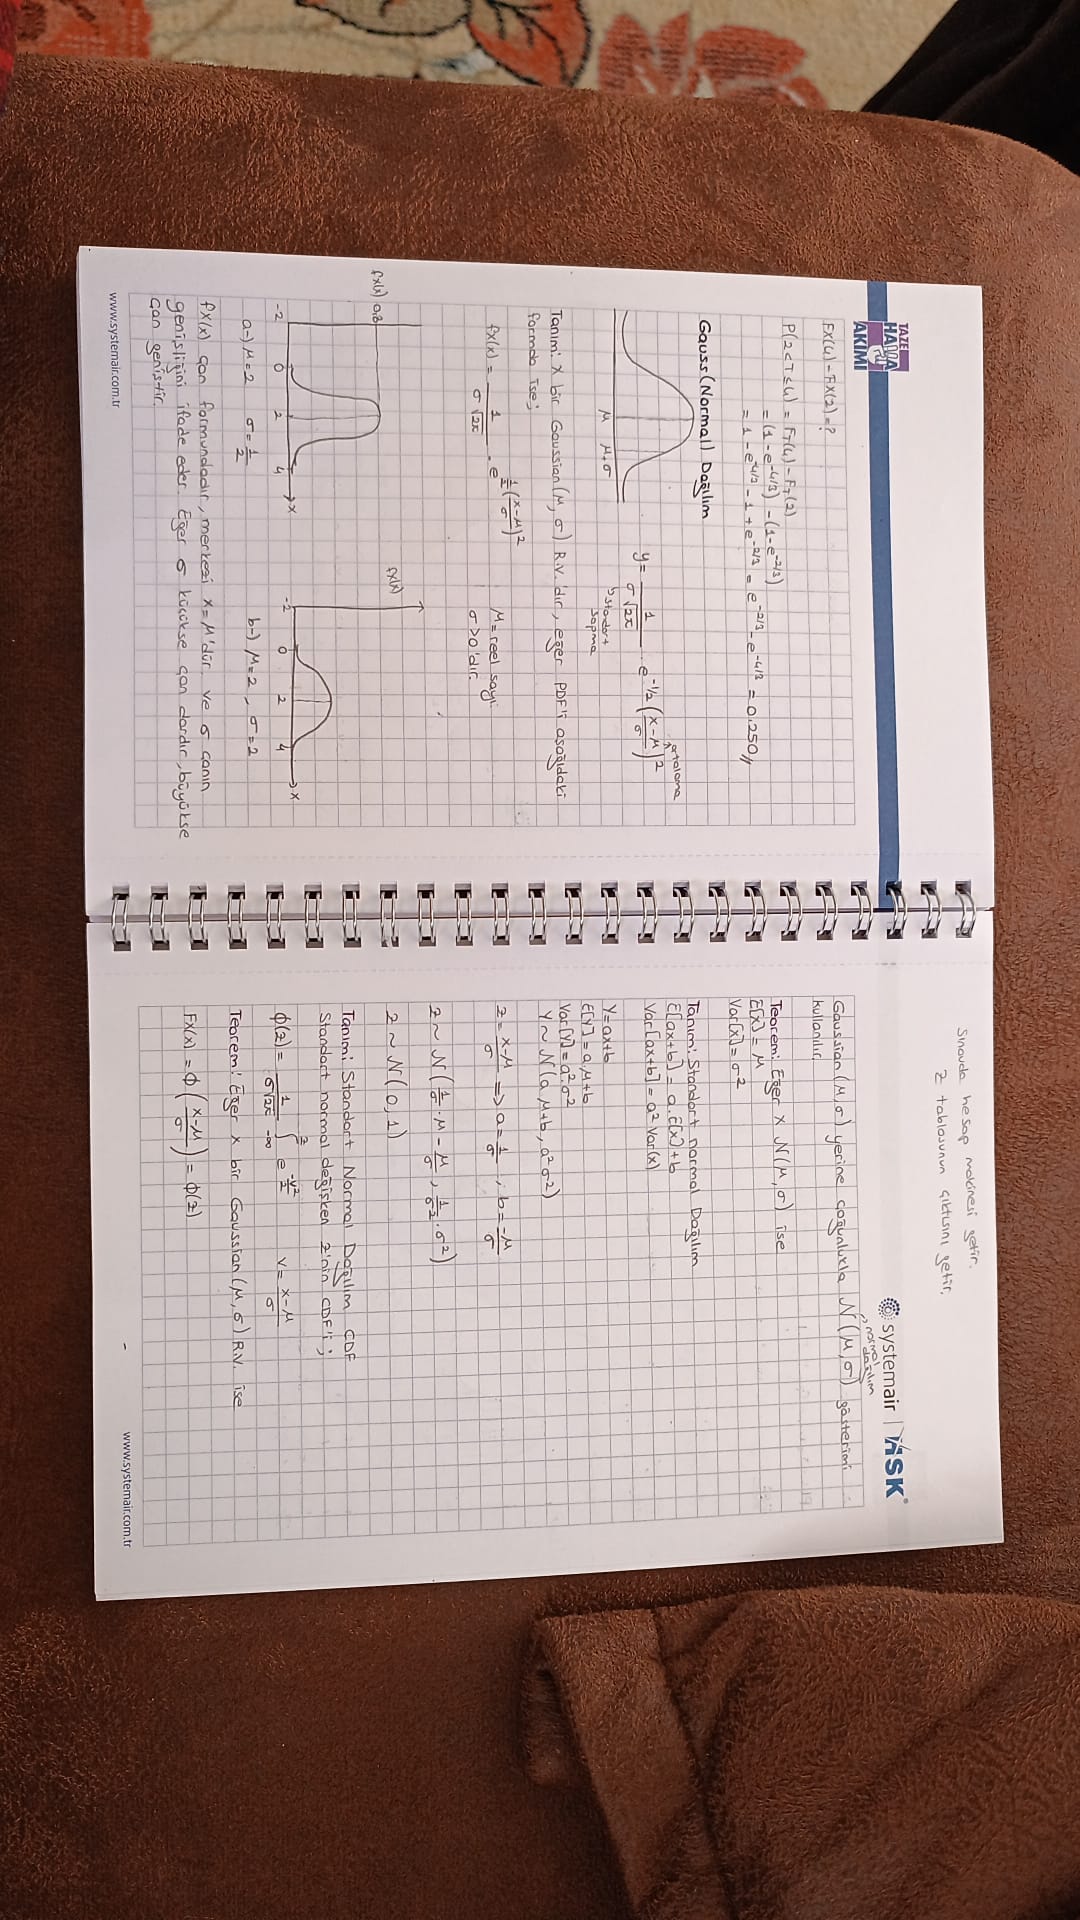 TAZE
HAVA
AKIMI
FX(4) - FX(2) = ?
P(2 < T ≤ 4) = F_T(4) - F_T(2)
= (1 - e^{-4/3}) - (1 - e^{-2/3})
= 1 - e^{-4/3} - 1 + e^{-2/3} = e^{-2/3} - e^{-4/3} = 0.250 //
Gauss (Normal) Dağılım
μ μ+σ
y = \frac{1}{σ\sqrt{2π}} . e^{-1/2 (\frac{x-μ}{σ})^2}
ortalama
↳ standart
sapma
Tanım: X bir Gaussian (μ, σ) R.V.'dır, eğer PDF'i aşağıdaki
formda ise;
fX(x) = \frac{1}{σ\sqrt{2π}} . e^{\frac{1}{2}(\frac{x-μ}{σ})^2} μ = reel sayı
σ > 0'dır.
fX(x) 0,8
-2 0 2 4 x
a-) μ = 2 σ = \frac{1}{2}
fX(x)
-2 0 2 4 x
b-) μ = 2, σ = 2
fX(x) çan formundadır, merkezi x = μ'dür. ve σ çanın
genişliğini ifade eder. Eğer σ küçükse çan dardır, büyükse
çan geniştir.
www.systemair.com.tr
Sınavda hesap makinesi getir.
Z tablosunun çıktısını getir.
systemair | HSK
Gaussian (μ, σ) yerine çoğunlukla N(μ, σ) gösterimi
normal
dağılım
kullanılır.
Teorem: Eğer X N(μ, σ) ise
E[X] = μ
Var[X] = σ^2
Tanım: Standart normal Dağılım
E[ax+b] = a.E[x] + b
Var[ax+b] = a^2 Var(x)
Y = ax+b
E[Y] = a.μ+b
Var[Y] = a^2.σ^2
Y ~ N(a.μ+b, a^2 σ^2)
Z = \frac{x-μ}{σ} => a = \frac{1}{σ}, b = \frac{-μ}{σ}
Z ~ N(\frac{1}{σ}.μ - \frac{μ}{σ}, \frac{1}{σ^2}.σ^2)
Z ~ N(0, 1)
Tanım: Standart Normal Dağılım CDF
Standart normal değişken Z'nin CDF'i;
φ(z) = \frac{1}{σ\sqrt{2π}} \int_{-∞}^{z} e^{\frac{-v^2}{2}} v = \frac{x-μ}{σ}
Teorem: Eğer X bir Gaussian (μ, σ) R.V. ise
FX(x) = φ(\frac{x-μ}{σ}) = φ(z)
www.systemair.com.tr